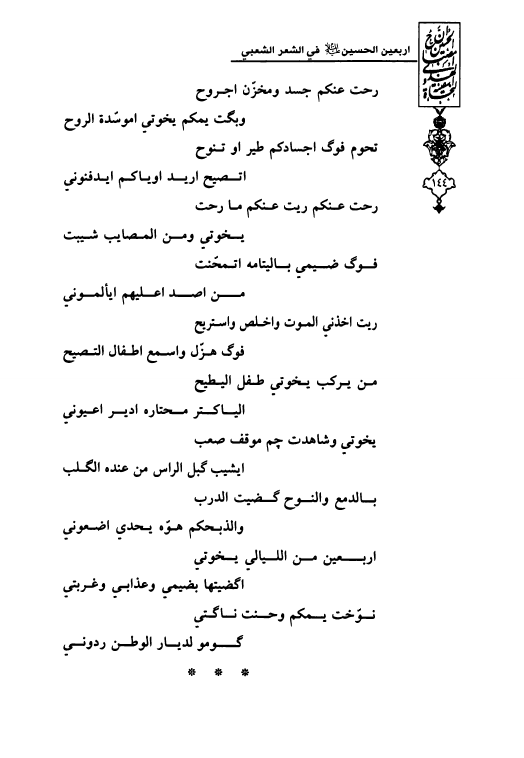 اربعين الحسين في الشعر الشعبي
١٤٤
رحت عنكم جسد ومخزّن اجروح
وبگت يمكم يخوتي اموسّدة الروح
تحوم فوگ اجسادكم طير او تنوح
اتصيح اريد اوياكم ايدفنوني
رحت عنكم ريت عنكم ما رحت
يخوتي ومن المصايب شيبت
فوگ ضيمي باليتامه اتمحّنت
من اصد اعليهم ايألموني
ريت اخذني الموت واخلص واستريح
فوگ هزّل واسمع اطفال التصيح
من يركب يخوتي طفل اليطيح
الياكتر محتاره ادير اعيوني
يخوتي وشاهدت چم موقف صعب
ايشيب گبل الراس من عنده الگلب
بالدمع والنوح گضيت الدرب
والذبحكم هوّه يحدي اضعوني
اربعين من الليالي يخوتي
اگضيتها بضيمي وعذابي وغربتي
نوّخت يمكم وحنت ناگتي
گومو لديار الوطن ردوني
* * *